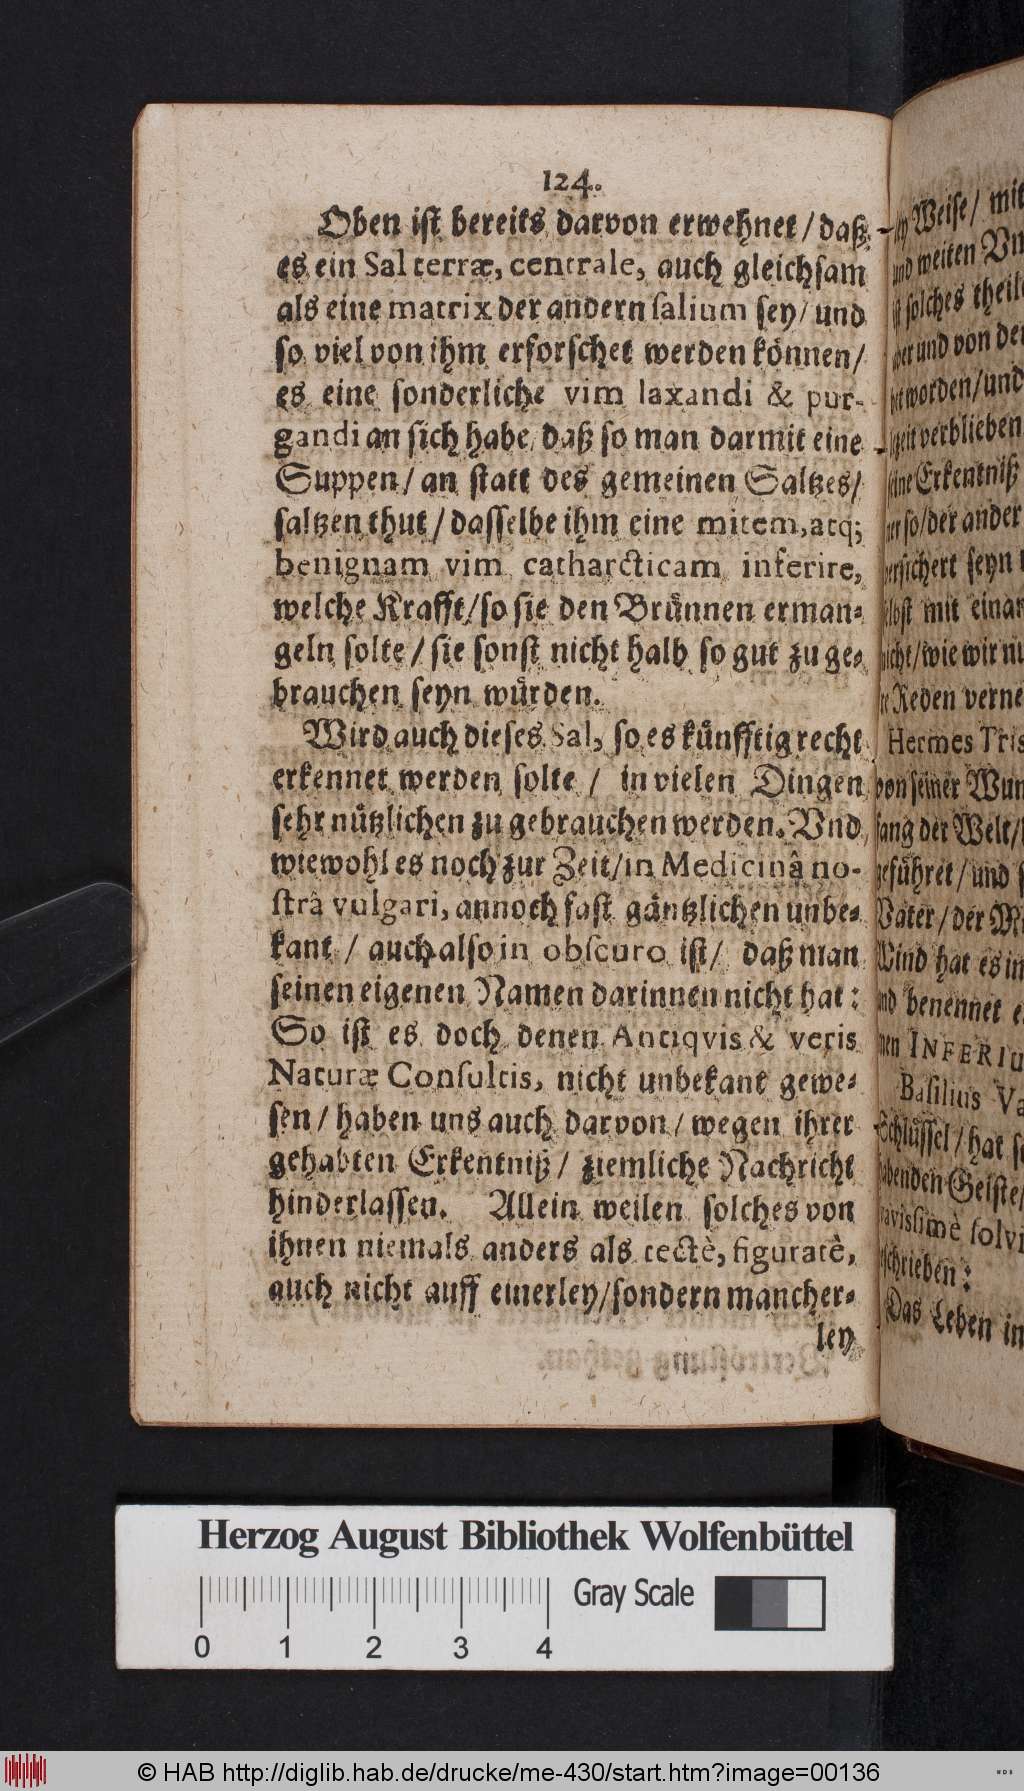 124.
Oben ist bereits darvon erwehnet / daß
es ein Sal terræ, centrale, auch gleichsam
als eine matrix der andern salium sey / und
so viel von ihm erforschet werden können /
es eine sonderliche vim laxandi & pur-
gandi an sich habe / daß so man darmit eine
Suppen / an statt des gemeinen Saltzes /
saltzen thut / dasselbe ihm eine mitem, atq;
benignam vim catharcticam inferire,
welche Krafft / so sie den Brünnen erman-
geln solte / sie sonst nicht halb so gut zu ge-
brauchen seyn würden.
Wird auch dieses Sal, so es künfftig recht
erkennet werden solte / in vielen Dingen
sehr nützlichen zu gebrauchen werden. Vnd
wiewohl es noch zur Zeit / in Medicinâ no-
strâ vulgari, annoch fast gäntzlichen unbe-
kant / auch also in obscuro ist / daß man
seinen eigenen Namen darinnen nicht hat:
So ist es doch denen Antiqvis & veris
Naturæ Consultis, nicht unbekant gewe-
sen / haben uns auch darvon / wegen ihrer
gehabten Erkentniß / ziemliche Nachricht
hinderlassen. Allein weilen solches von
ihnen niemals anders als tectè, figuratè,
auch nicht auff einerley / sondern mancher-
ley
Weise / mit
und weiten
solches
und von
worden / und
verblieben
Erkentniß
so / der ander
seyn
mit
wie wir
Reden
Hermes
von seiner
der Welt /
und
Vater / der
Wind hat es
benennet
Basilius
hat
Geiste
Das Leben in
Herzog August Bibliothek Wolfenbüttel
0 1 2 3 4
Gray Scale
© HAB http://diglib.hab.de/drucke/me-430/start.htm?image=00136